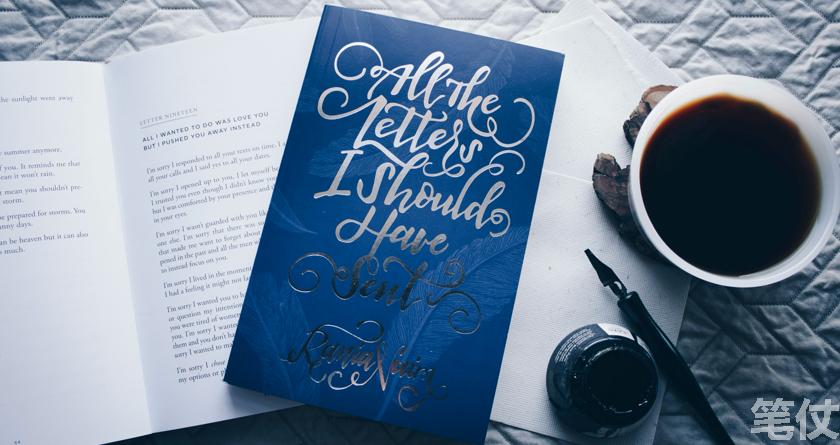 the sunlight went away
summer anymore.
of you. It reminds me that
ean it won't rain.
t mean you shouldn't pre-
storm.
be prepared for storms. You
anny days.
an be heaven but it can also
s much.
64
LETTER NINETEEN
ALL I WANTED TO DO WAS LOVE YOU
BUT I PUSHED YOU AWAY INSTEAD
I'm sorry I responded to all your texts on time. I a
all your calls and I said yes to all your dates.
I'm sorry I opened up to you, I let myself be
I trusted you even though I didn't know you
but I was comforted by your presence and th
in your eyes.
I'm sorry I wasn't guarded with you like
one else. I'm sorry that there was so
that made me want to forget about
pened in the past and all the men w
to instead focus on you.
I'm sorry I lived in the moment
I had a feeling it might not las
I'm sorry I wanted you to h
or question my intention
you were tired of women
them and you don't ha
sorry I wanted to ma
I'm sorry I chose
my options or p
All the
Letters
I Should
Have
Sent
Rania Naim
笔仗